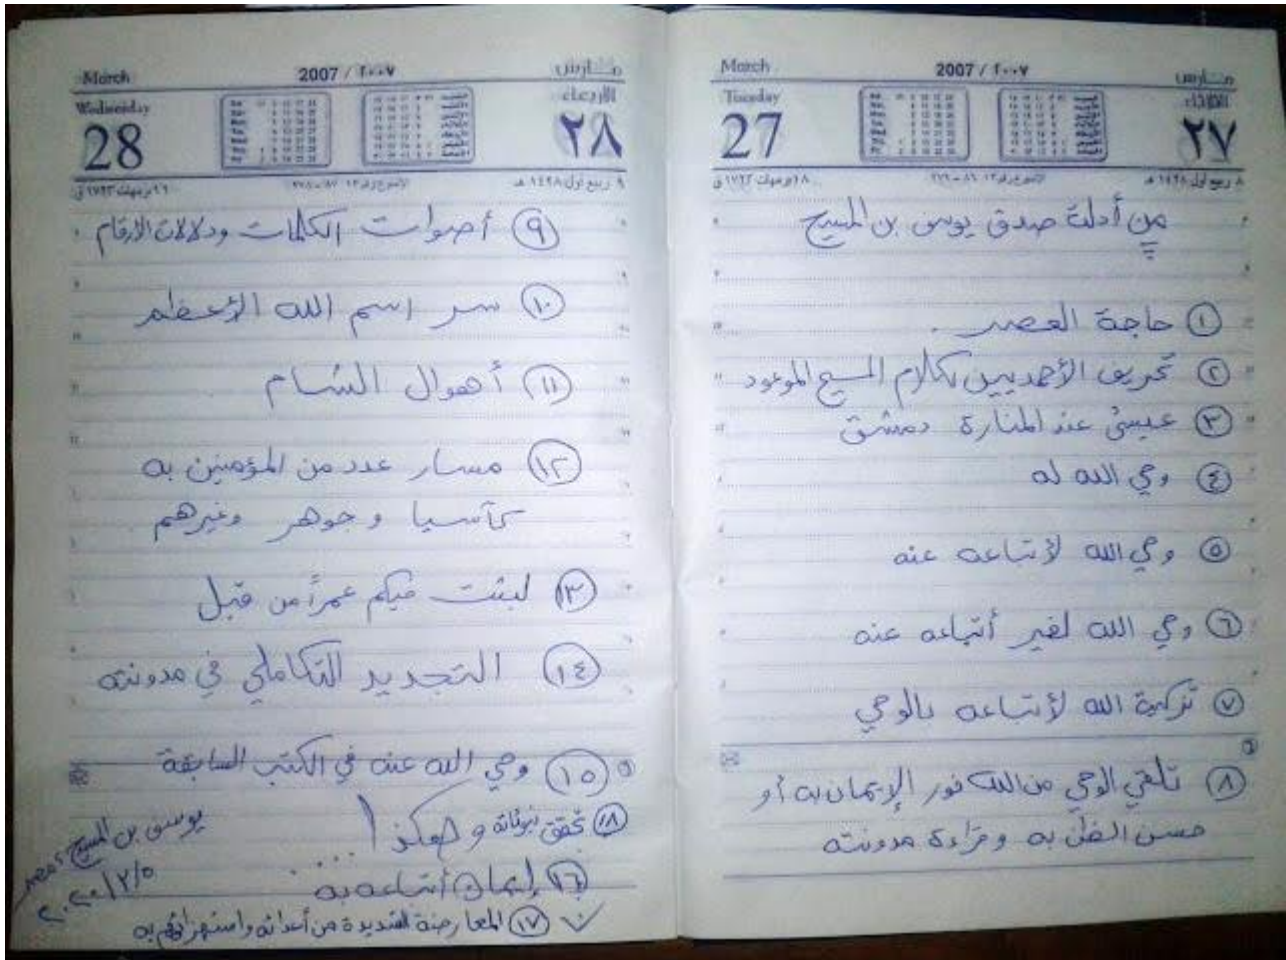 March
2007 / ٢٠٠٧
مارس
Tuesday
الثلاثاء
27
٢٧
٨ ربيع أول ١٤٢٨ هـ
من أدلة صدق يوسف بن المسيح
١ حاجة العصر .
٢ تحريف الأحمديين لكلام المسيح الموعود
٣ عيسى عند المنارة دمشق
٤ وحي الله له
٥ وحي الله لأتباعه عنه
٦ وحي الله لغير أتباعه عنه
٧ تزكية الله لأتباعه بالوحي
٨ تلقي الوحي من الله فور الإيمان به أو
حسن الظن به وقراءة مدونته
March
2007 / ٢٠٠٧
مارس
Wednesday
الأربعاء
28
٢٨
٩ ربيع أول ١٤٢٨ هـ
٩ أصوات الكلمات ودلالات الأرقام
١٠ سر اسم الله الأعظم
١١ أهوال الشام
١٢ مسار عدد من المؤمنين به
كآسيا و جوهر وغيرهم
١٣ لبثت فيكم عمراً من قبل
١٤ التجديد التكاملي في مدونته
١٥ وحي الله عنه في الكتب السابقة
١٨ تحقق نبوءاته و هكذا ! ...
١٦ إيمان أتباعه به
١٧ المعارضة الشديدة من أعدائه واستهزائهم به
يوسف بن المسيح
٢٠٢٠/٢/٥